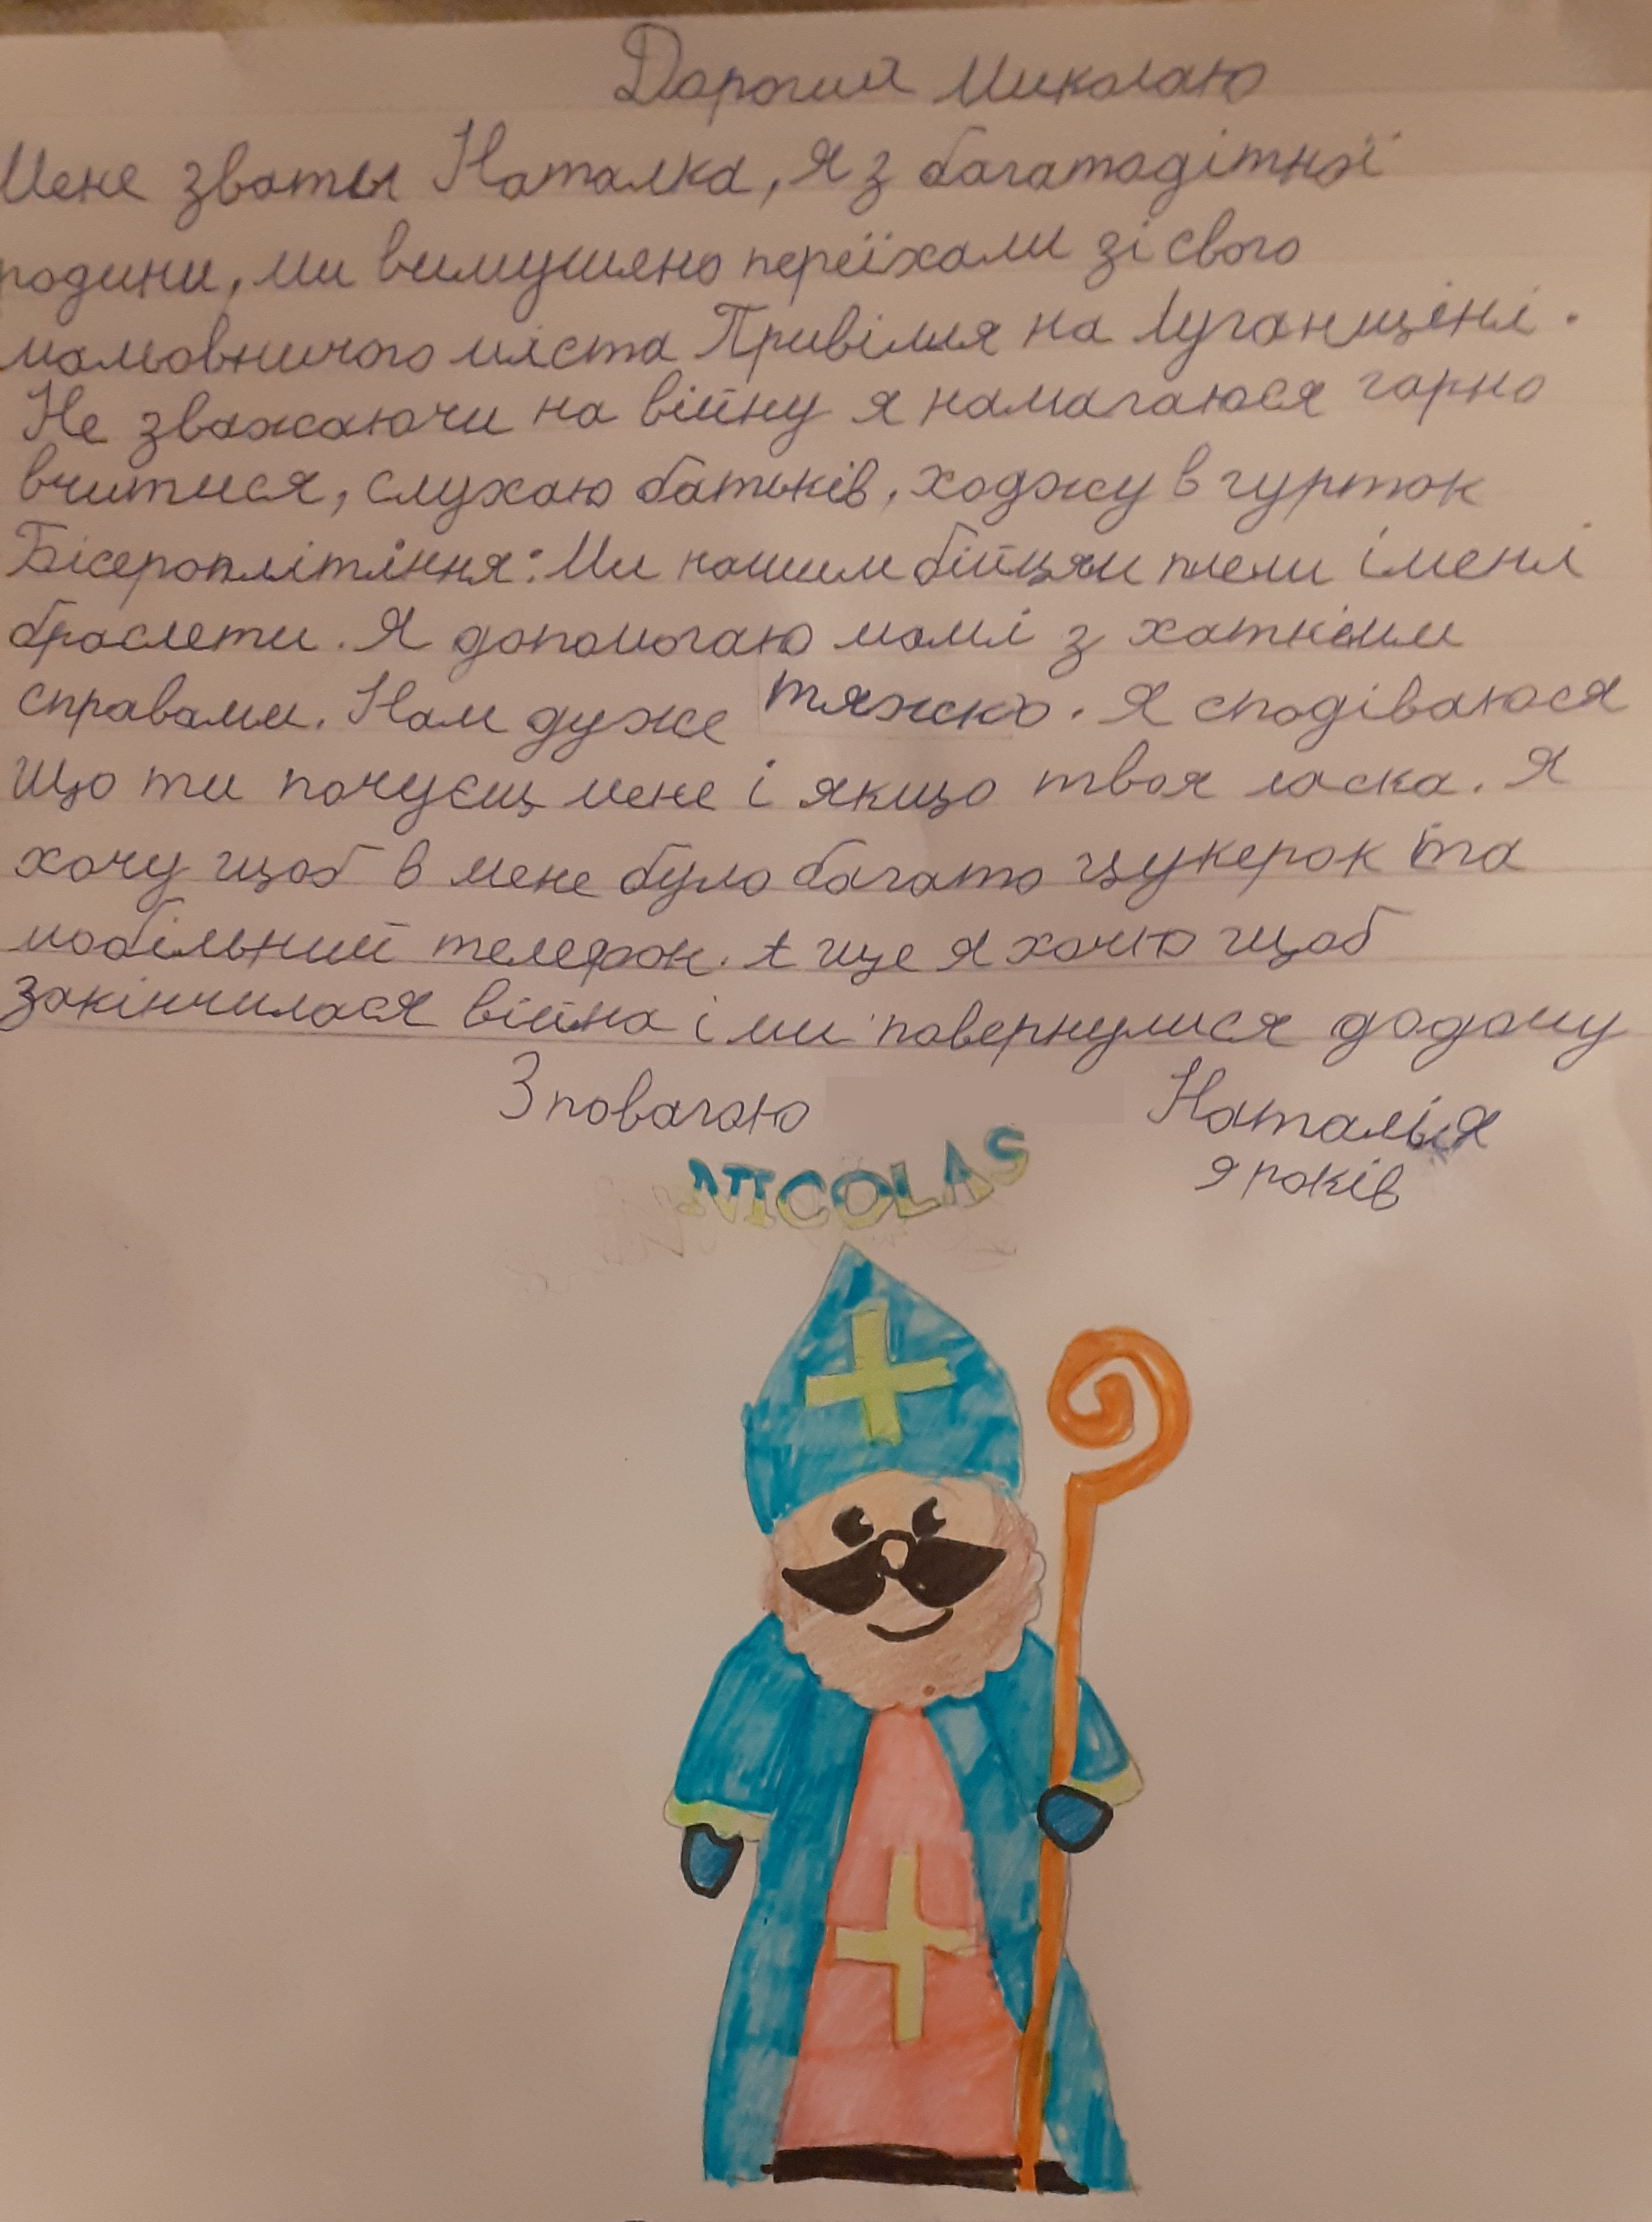 Дорогий Миколаю
Мене зваты Наталка, я з багатодітної
родини, ми вимушено переїхали зі свого
мальовничого міста Привілля на Луганщіні.
Не зважаючи на війну я намагаюся гарно
вчитися, слухаю батьків, ходжу в гурток
Бісероплітіння: Ми нашим бійцям плели імені
браслети. Я допомогаю мамі з хатніми
справами. Нам дуже тяжко. Я сподіваюся
що ти почуєщ мене і якщо твоя ласка. Я
хочу щоб в мене було багато цукерок та
мобільний телефон. А ще я хочю щоб
закінчилася війна і ми повернулися додому
З повагою Наталья
9 років
NICOLAS